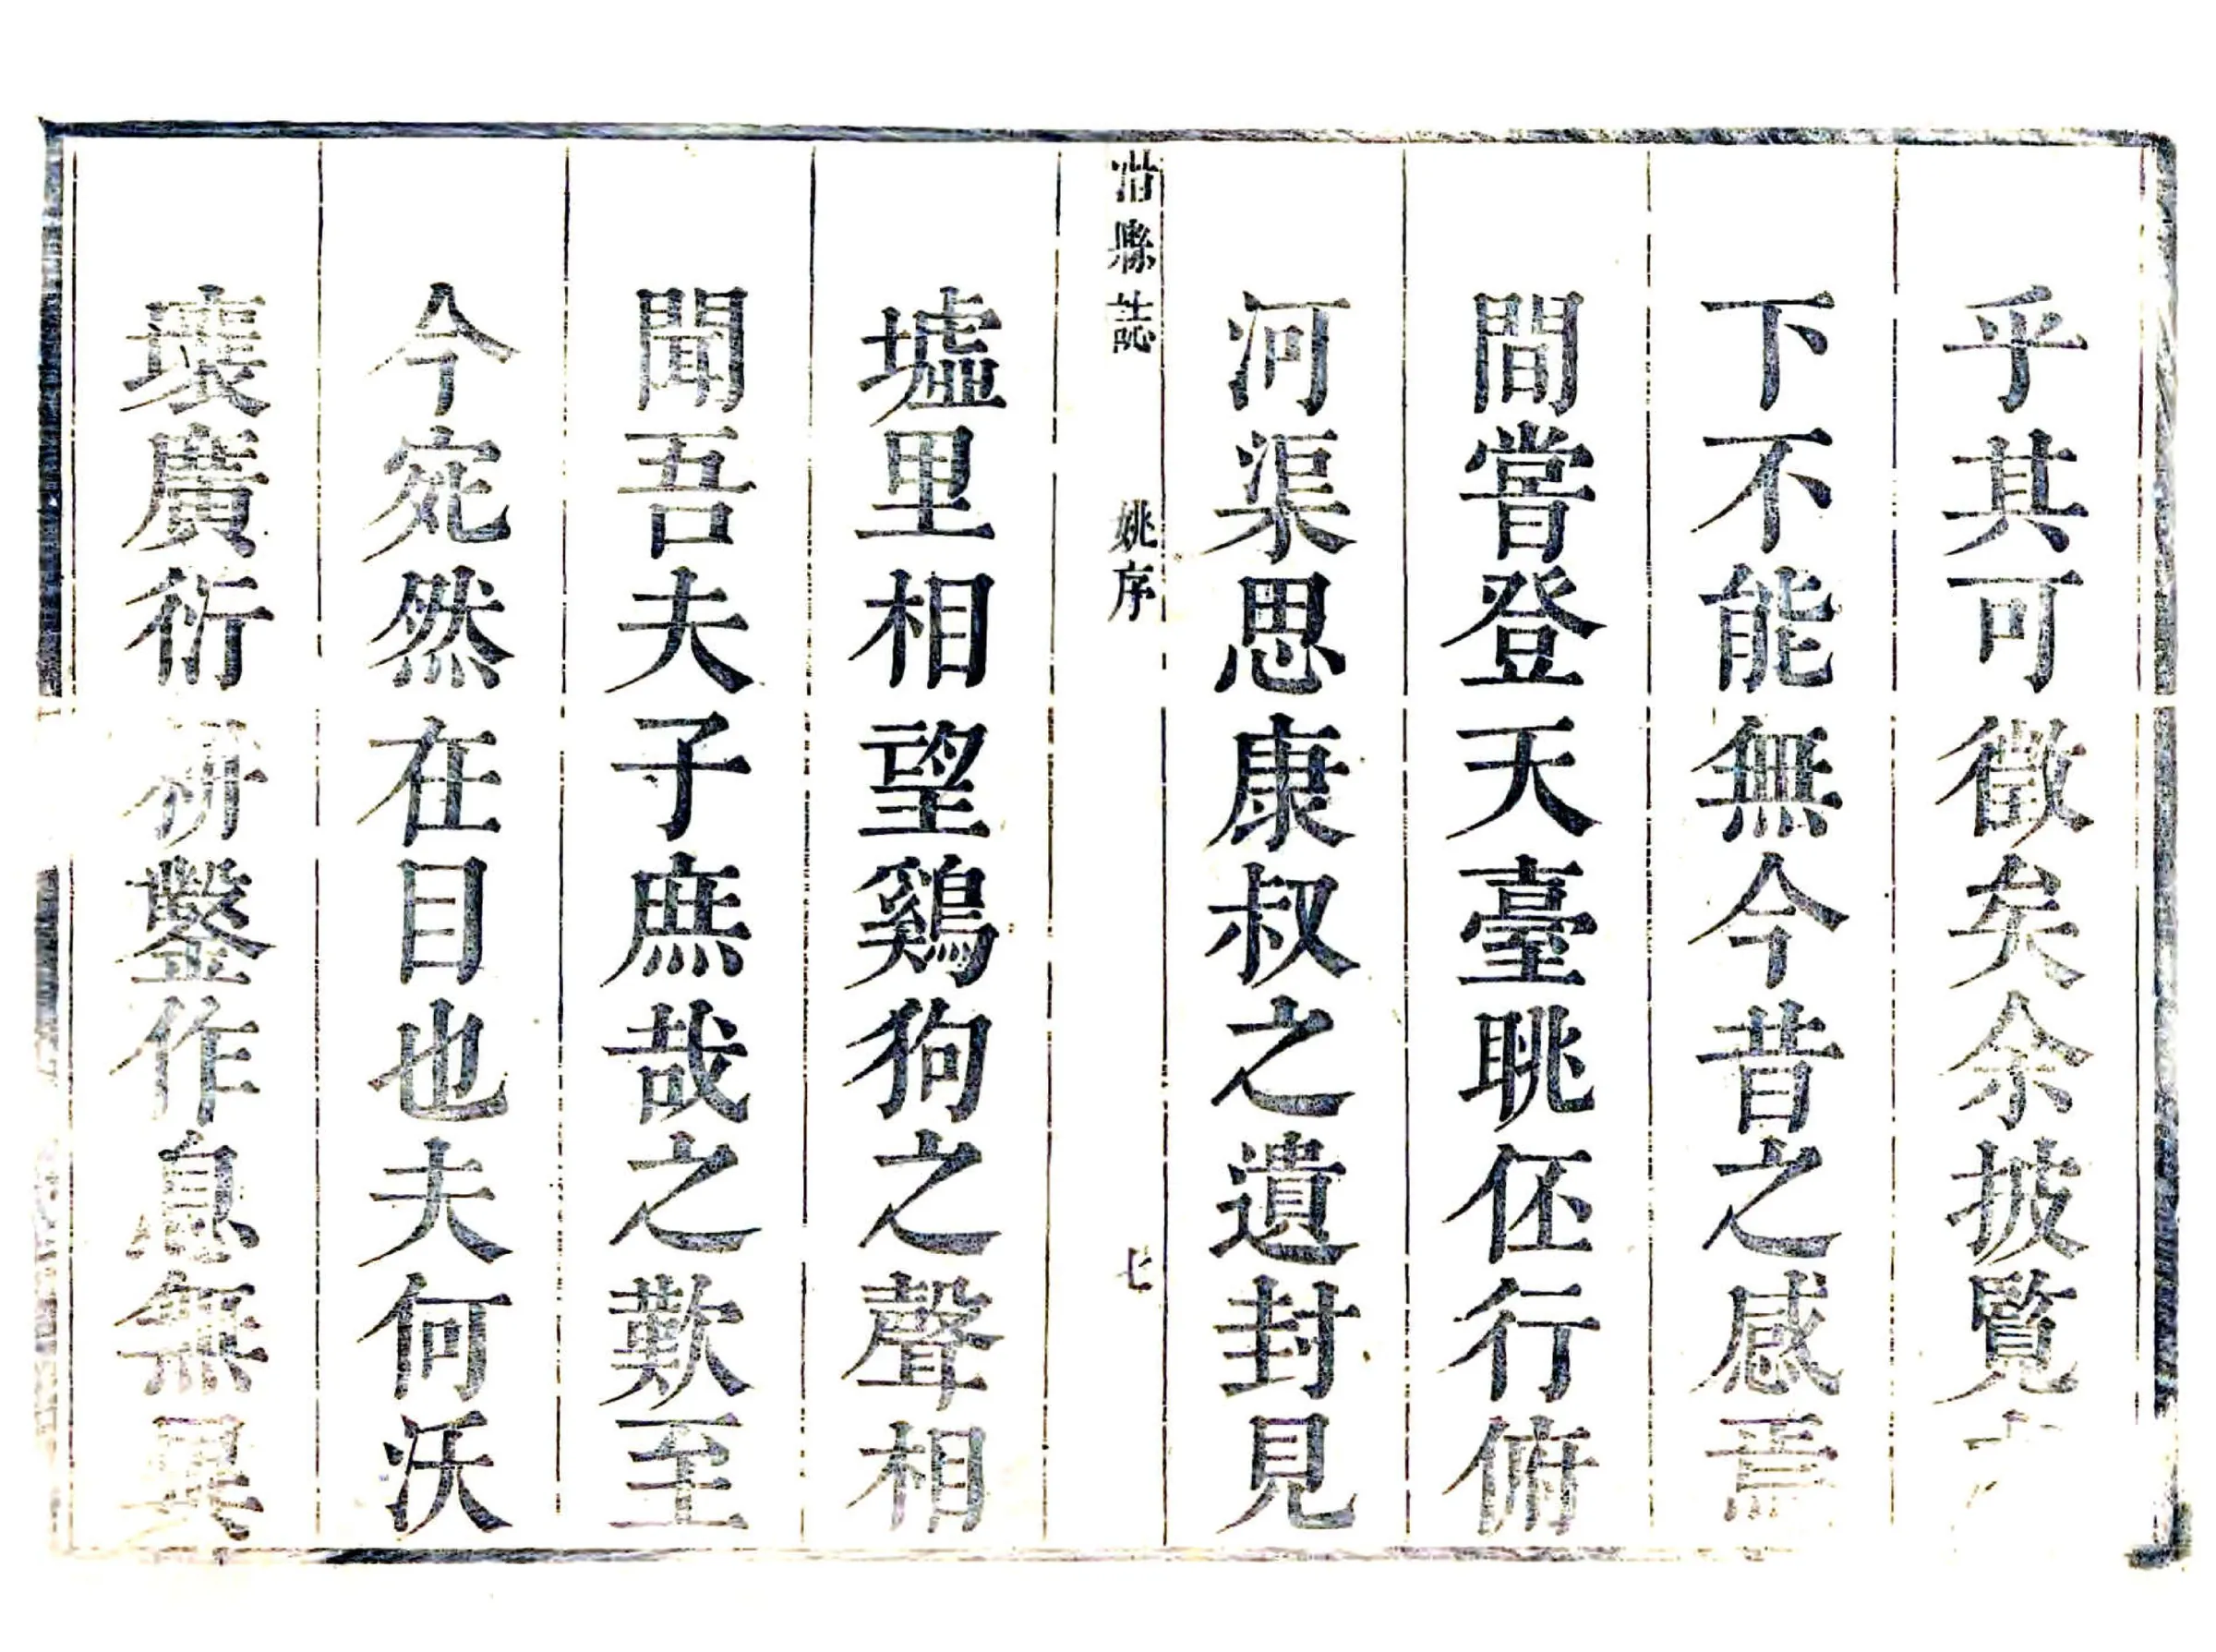 乎其可徵矣余披覧
下不能無今昔之感焉
間嘗登天臺眺伾行俯
河渠思康叔之遺封見
滑縣誌 姚序 七
墟里相望鷄狗之聲相
聞吾夫子庶哉之歎至
今宛然在目也夫何沃
壤廣衍耕鑿作息無異